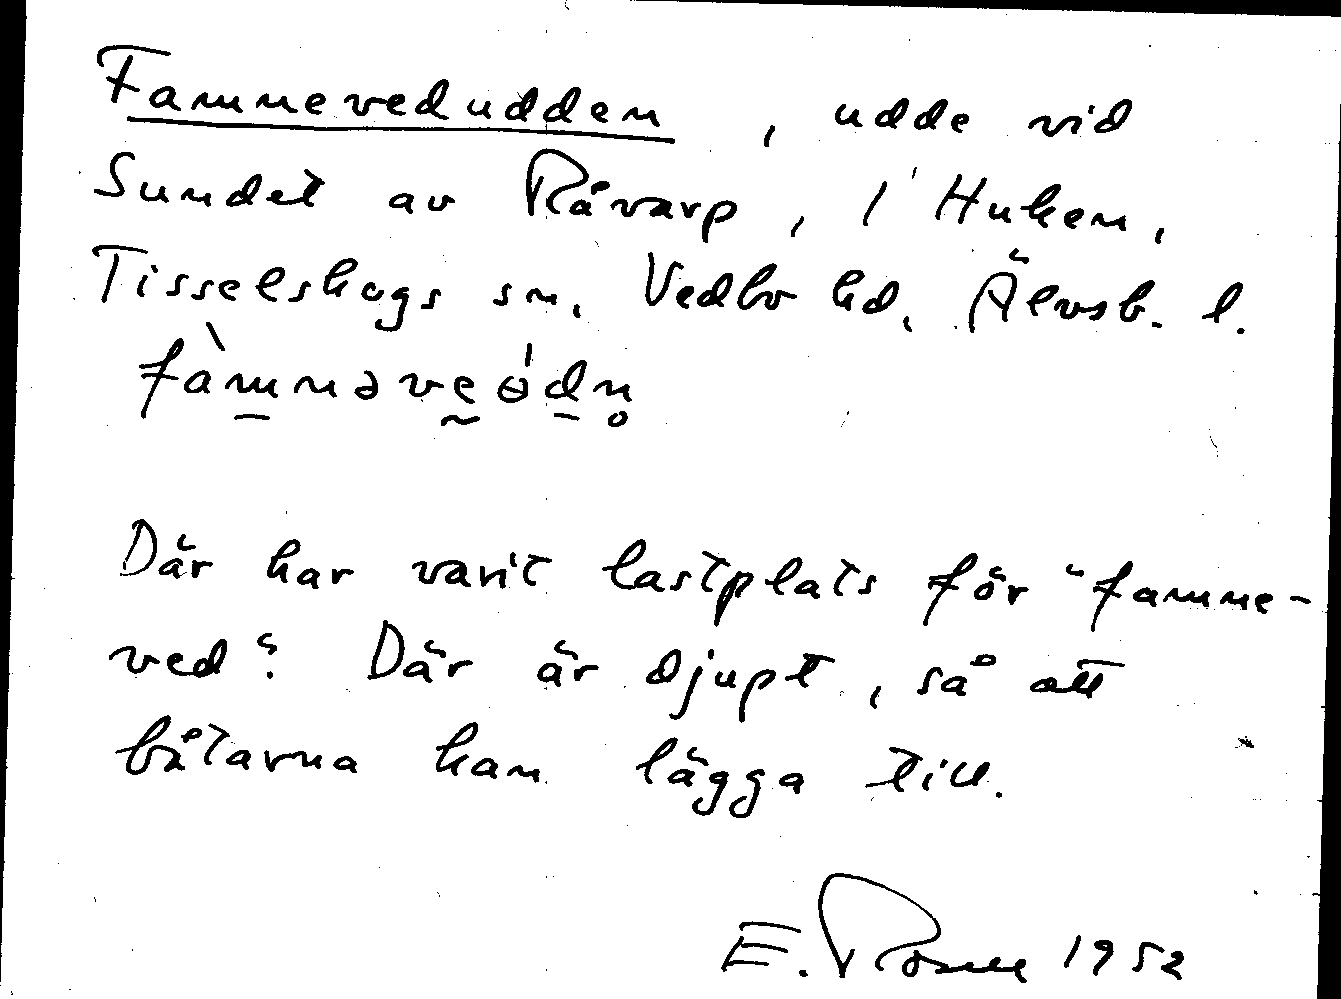 Famnevedudden, udde vid
Sundet av Råvarp, i Huken,
Tisselskogs sn, Vedbo hd, Älvsb. l.
Där har varit lastplats för "famne-
ved". Där är djupt, så att
båtarna kan lägga till.
E. 1952